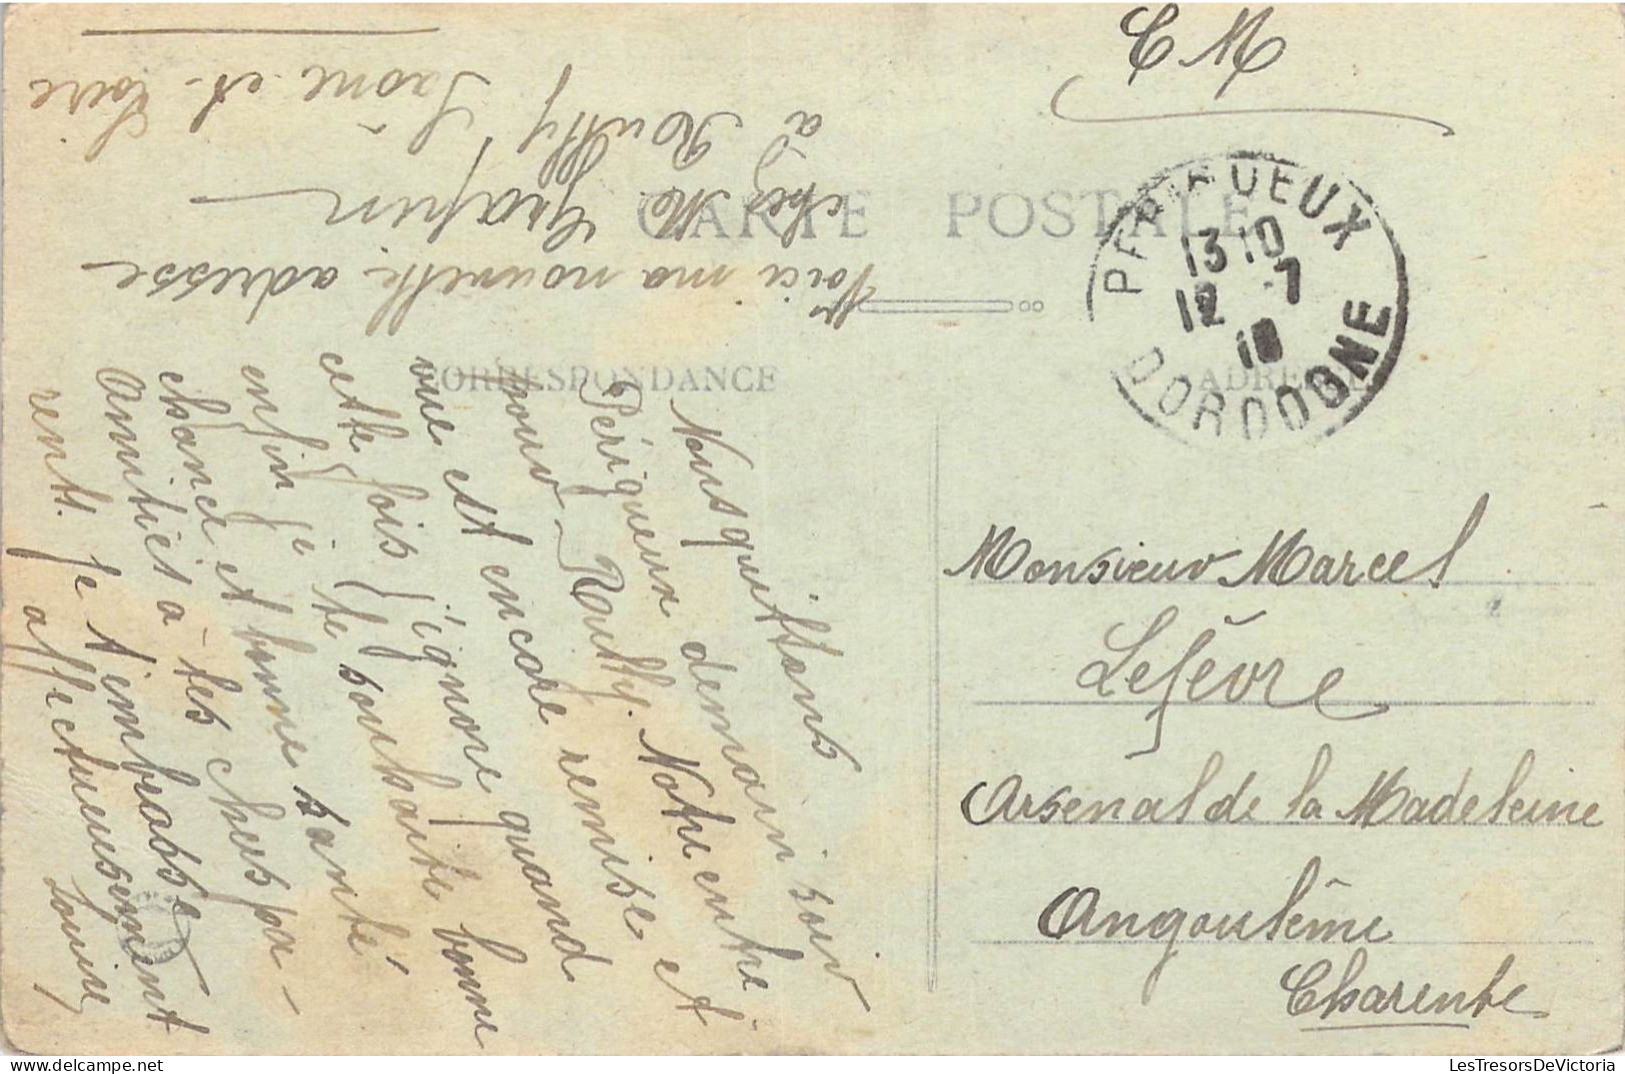 C M
CARTE POSTALE
PERIGUEUX
13 10
12 - 7
18
DORDOGNE
CORRESPONDANCE
ADRESSE
Voici ma nouvelle adresse
chez M Grapin
à Rouffy
Saône et Loire
Nous quittons
Périgueux demain soir
pour Rouffy. Notre entre
vue est encore remise et
cette fois j'ignore quand
enfin je te souhaite bonne
chance et bonne santé
Amitiés à tes chers pa-
rents. Je t'embrasse
affectueusement
Louise
Monsieur Marcel
Lefèvre
Arsenal de la Madeleine
Angoulême
Charente
LesTresorsDeVictoria